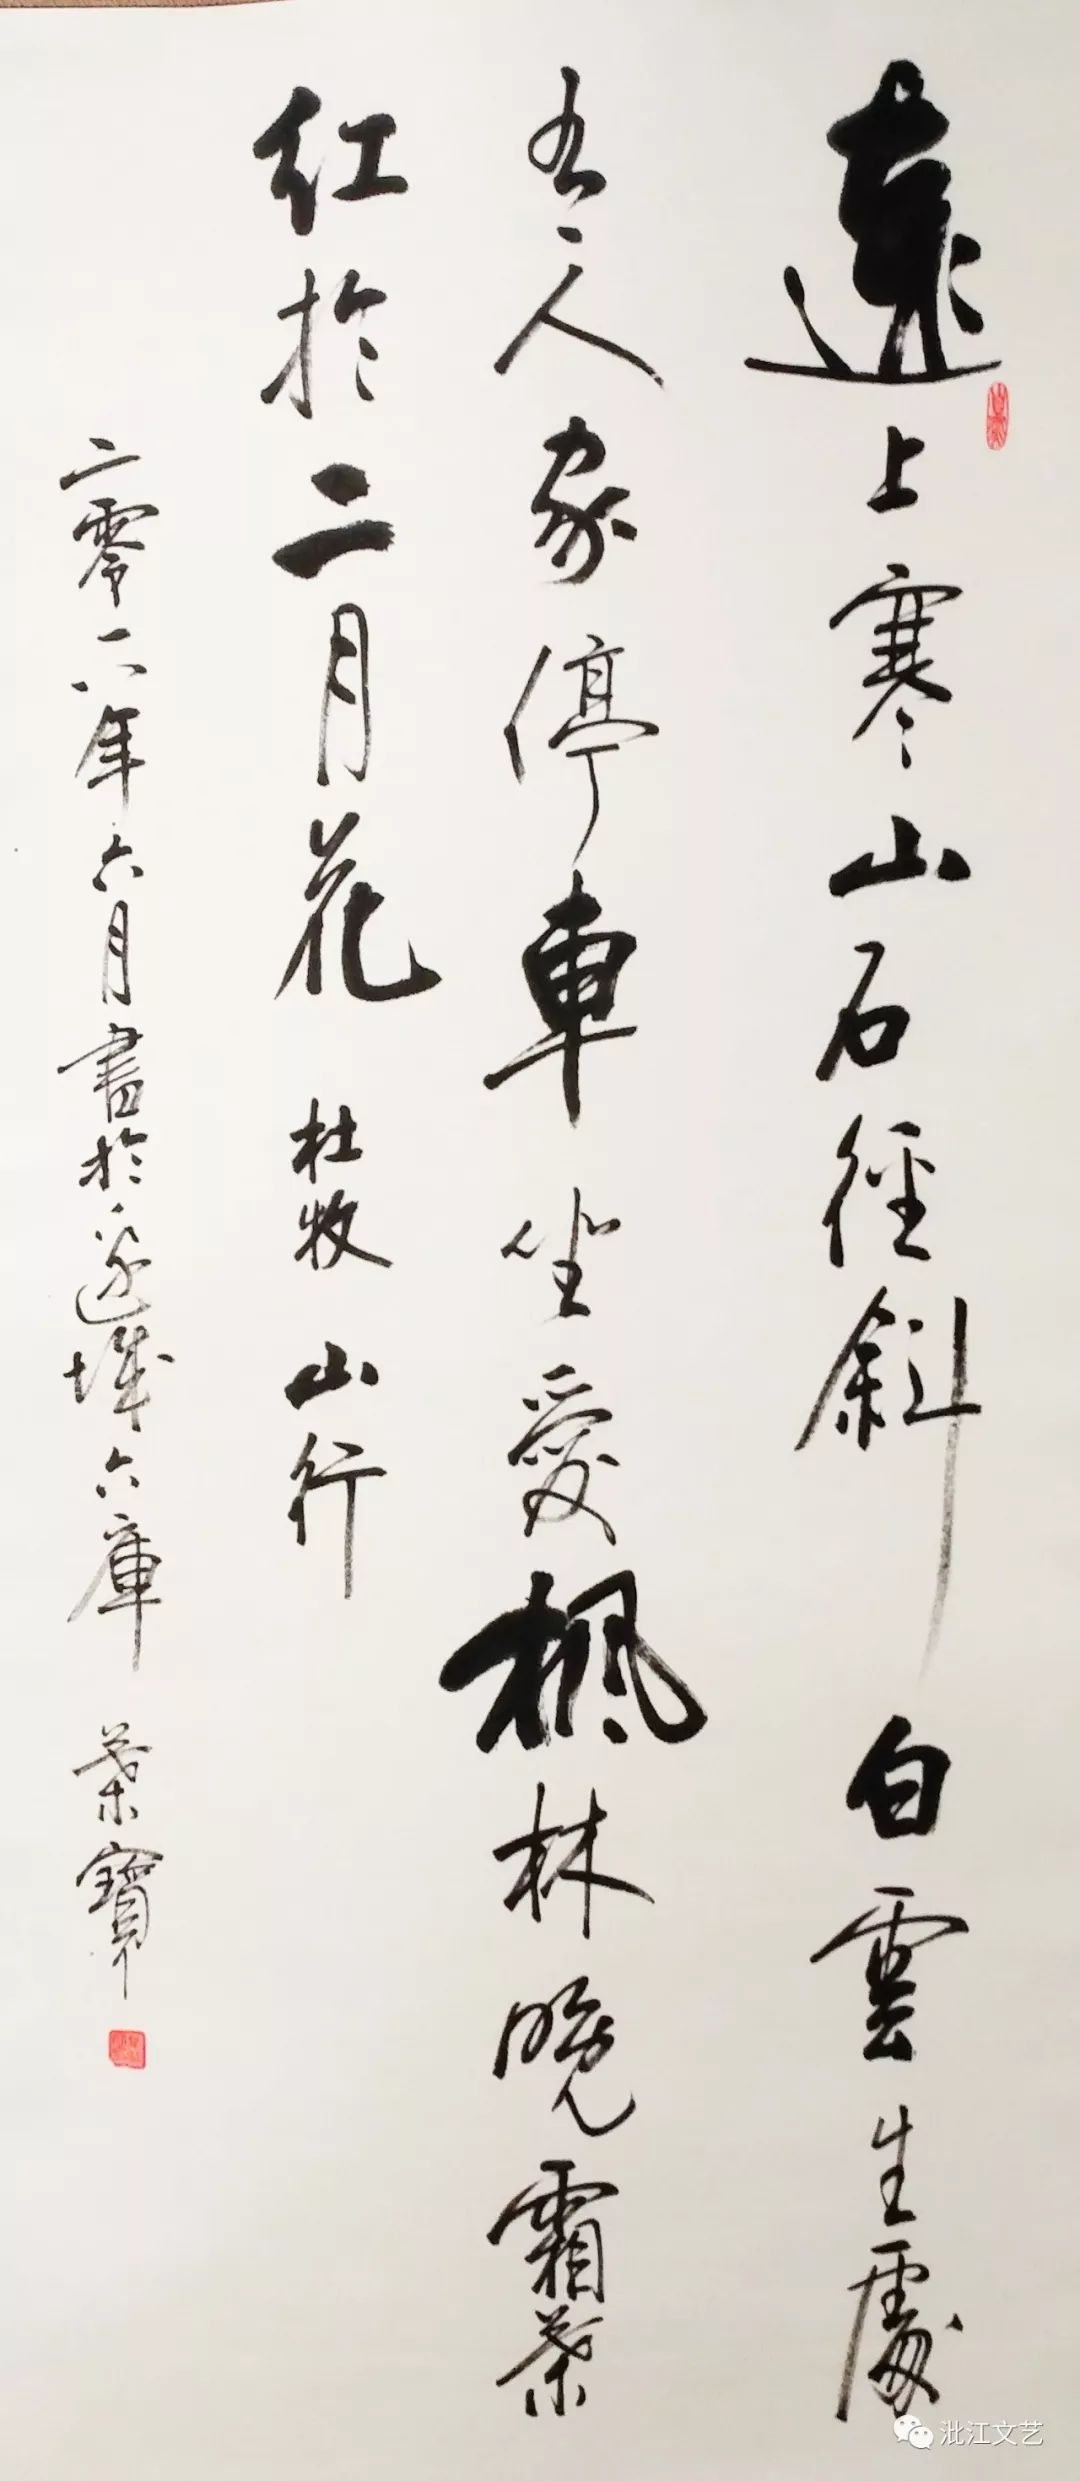 遠上寒山石徑斜白雲生處
有人家停車坐愛楓林晚霜葉
红於二月花 杜牧 山行
二零一八年六月書於邊城六庫 葉寶
沘江文艺